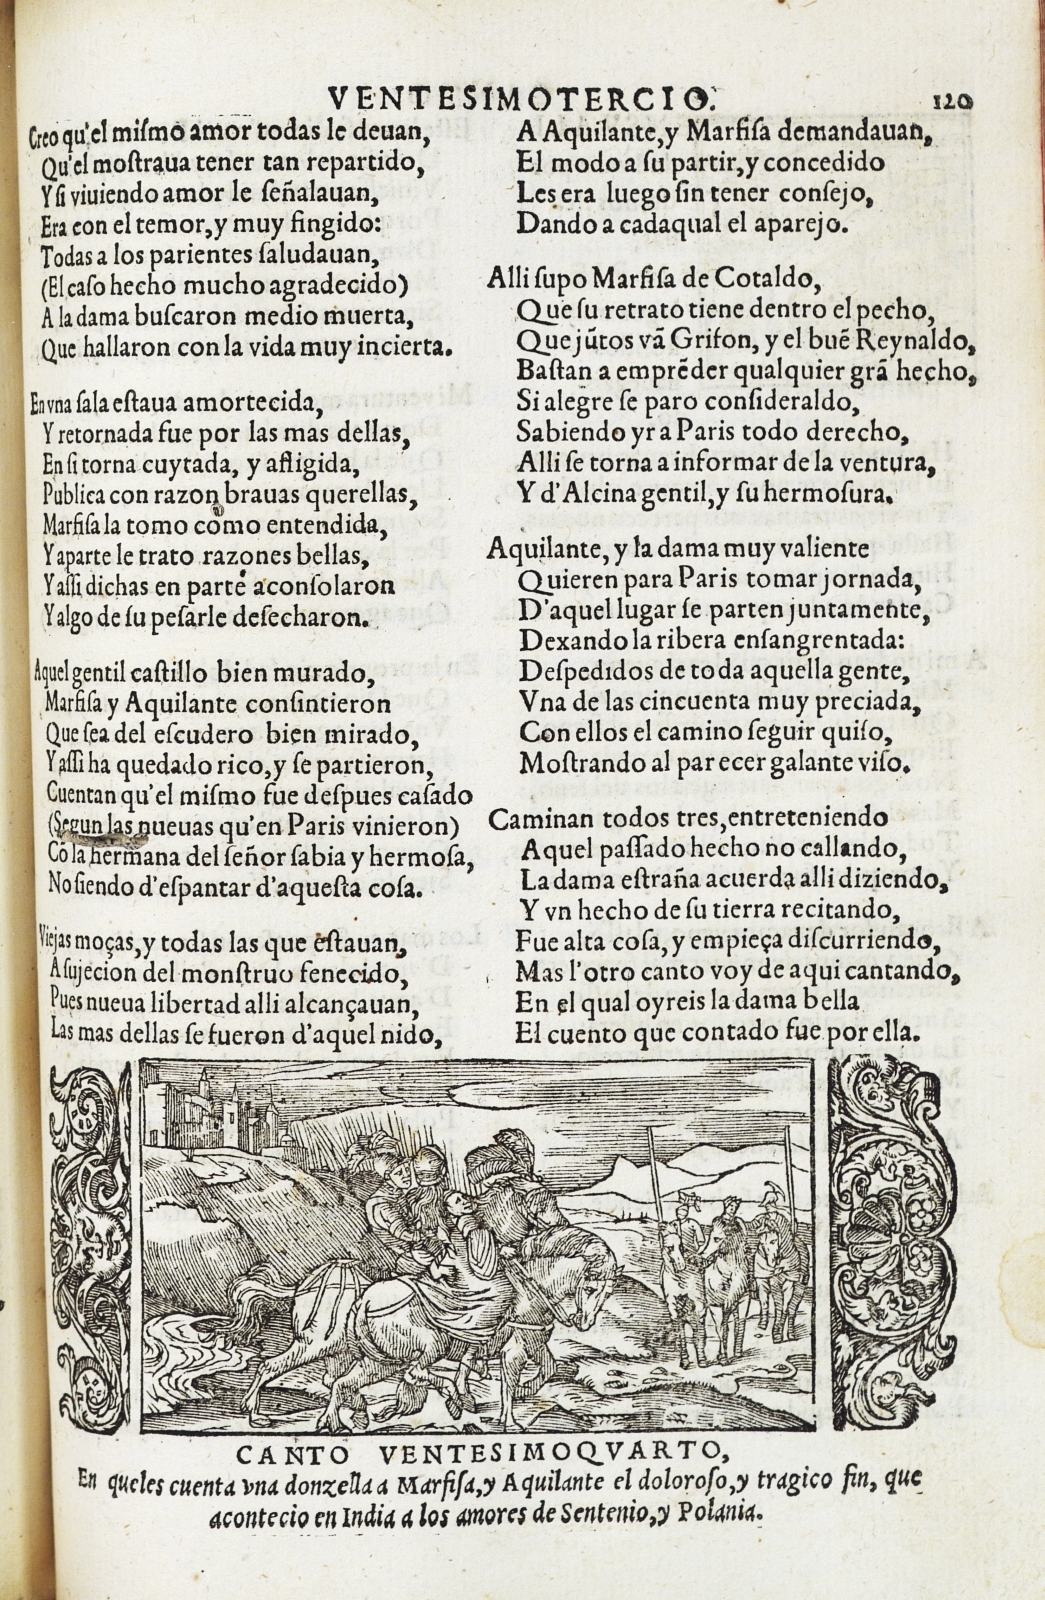 VENTESIMOTERCIO. 120
Creo qu'el miſmo amor todas le deuan,
Qu'el moſtraua tener tan repartido,
Y ſi viuiendo amor le ſeñalauan,
Era con el temor, y muy fingido:
Todas a los parientes ſaludauan,
(El caſo hecho mucho agradecido)
A la dama buſcaron medio muerta,
Que hallaron con la vida muy incierta.
En vna ſala eſtaua amortecida,
Y retornada fue por las mas dellas,
En ſi torna cuytada, y afligida,
Publica con razon brauas querellas,
Marfiſa la tomo como entendida,
Y aparte le trato razones bellas,
Y aſſi dichas en parte aconſolaron
Y algo de ſu peſarle deſecharon.
Aquel gentil caſtillo bien murado,
Marfiſa y Aquilante conſintieron
Que ſea del eſcudero bien mirado,
Y aſſi ha quedado rico, y ſe partieron,
Cuentan qu'el miſmo fue deſpues caſado
(Segun las nueuas qu'en Paris vinieron)
Cō la hermana del ſeñor ſabia y hermoſa,
No ſiendo d'eſpantar d'aqueſta coſa.
Viejas moças, y todas las que eſtauan,
A ſujecion del monſtruo fenecido,
Pues nueua libertad alli alcançauan,
Las mas dellas ſe fueron d'aquel nido,
A Aquilante, y Marfiſa demandauan,
El modo a ſu partir, y concedido
Les era luego ſin tener conſejo,
Dando a cadaqual el aparejo.
Alli ſupo Marfiſa de Cotaldo,
Que ſu retrato tiene dentro el pecho,
Que jūtos vā Grifon, y el buē Reynaldo,
Baſtan a emprēder qualquier grā hecho,
Si alegre ſe paro conſideraldo,
Sabiendo yr a Paris todo derecho,
Alli ſe torna a informar de la ventura,
Y d'Alcina gentil, y ſu hermoſura.
Aquilante, y la dama muy valiente
Quieren para Paris tomar jornada,
D'aquel lugar ſe parten juntamente,
Dexando la ribera enſangrentada:
Deſpedidos de toda aquella gente,
Vna de las cincuenta muy preciada,
Con ellos el camino ſeguir quiſo,
Moſtrando al par ecer galante viſo.
Caminan todos tres, entreteniendo
Aquel paſſado hecho no callando,
La dama eſtraña acuerda alli diziendo,
Y vn hecho de ſu tierra recitando,
Fue alta coſa, y empieça diſcurriendo,
Mas l'otro canto voy de aqui cantando,
En el qual oyreis la dama bella
El cuento que contado fue por ella.
CANTO VENTESIMOQVARTO,
En queles cuenta vna donzella a Marfiſa, y Aquilante el doloroſo, y tragico fin, que
acontecio en India a los amores de Sentenio, y Polania.